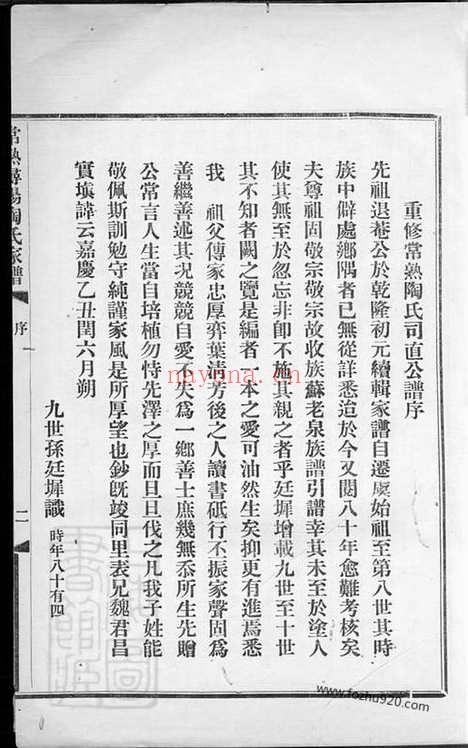 重修常熟陶氏司直公譜序
先祖退菴公於乾隆初元續輯家譜自遷虞始祖至第八世其時
族中僻處鄉隅者已無從詳悉迨於今又閱八十年愈難考核矣
夫尊祖固敬宗敬宗故收族蘇老泉族譜引譜幸其未至於塗人
使其無至於忽忘非卽不施其親之者乎廷墀增載九世至十世
其不知者闕之覽是編者一本之愛可油然生矣抑更有進焉悉
我 祖父傳家忠厚弈葉清芳後之人讀書砥行不振家聲固爲
善繼善述其況競競自愛不失爲一鄉善士庶幾無忝所生先贈
公常言人生當自培植勿恃先澤之厚而且旦伐之凡我子姓能
敬佩斯訓勉守純謹家風是所厚望也鈔旣竣同里表兄魏君昌
實填諱云嘉慶乙丑閏六月朔
九世孫廷墀識 時年八十有四
常熟潯陽陶氏家譜
序
二
nayona.cn
www.fozhu920.com